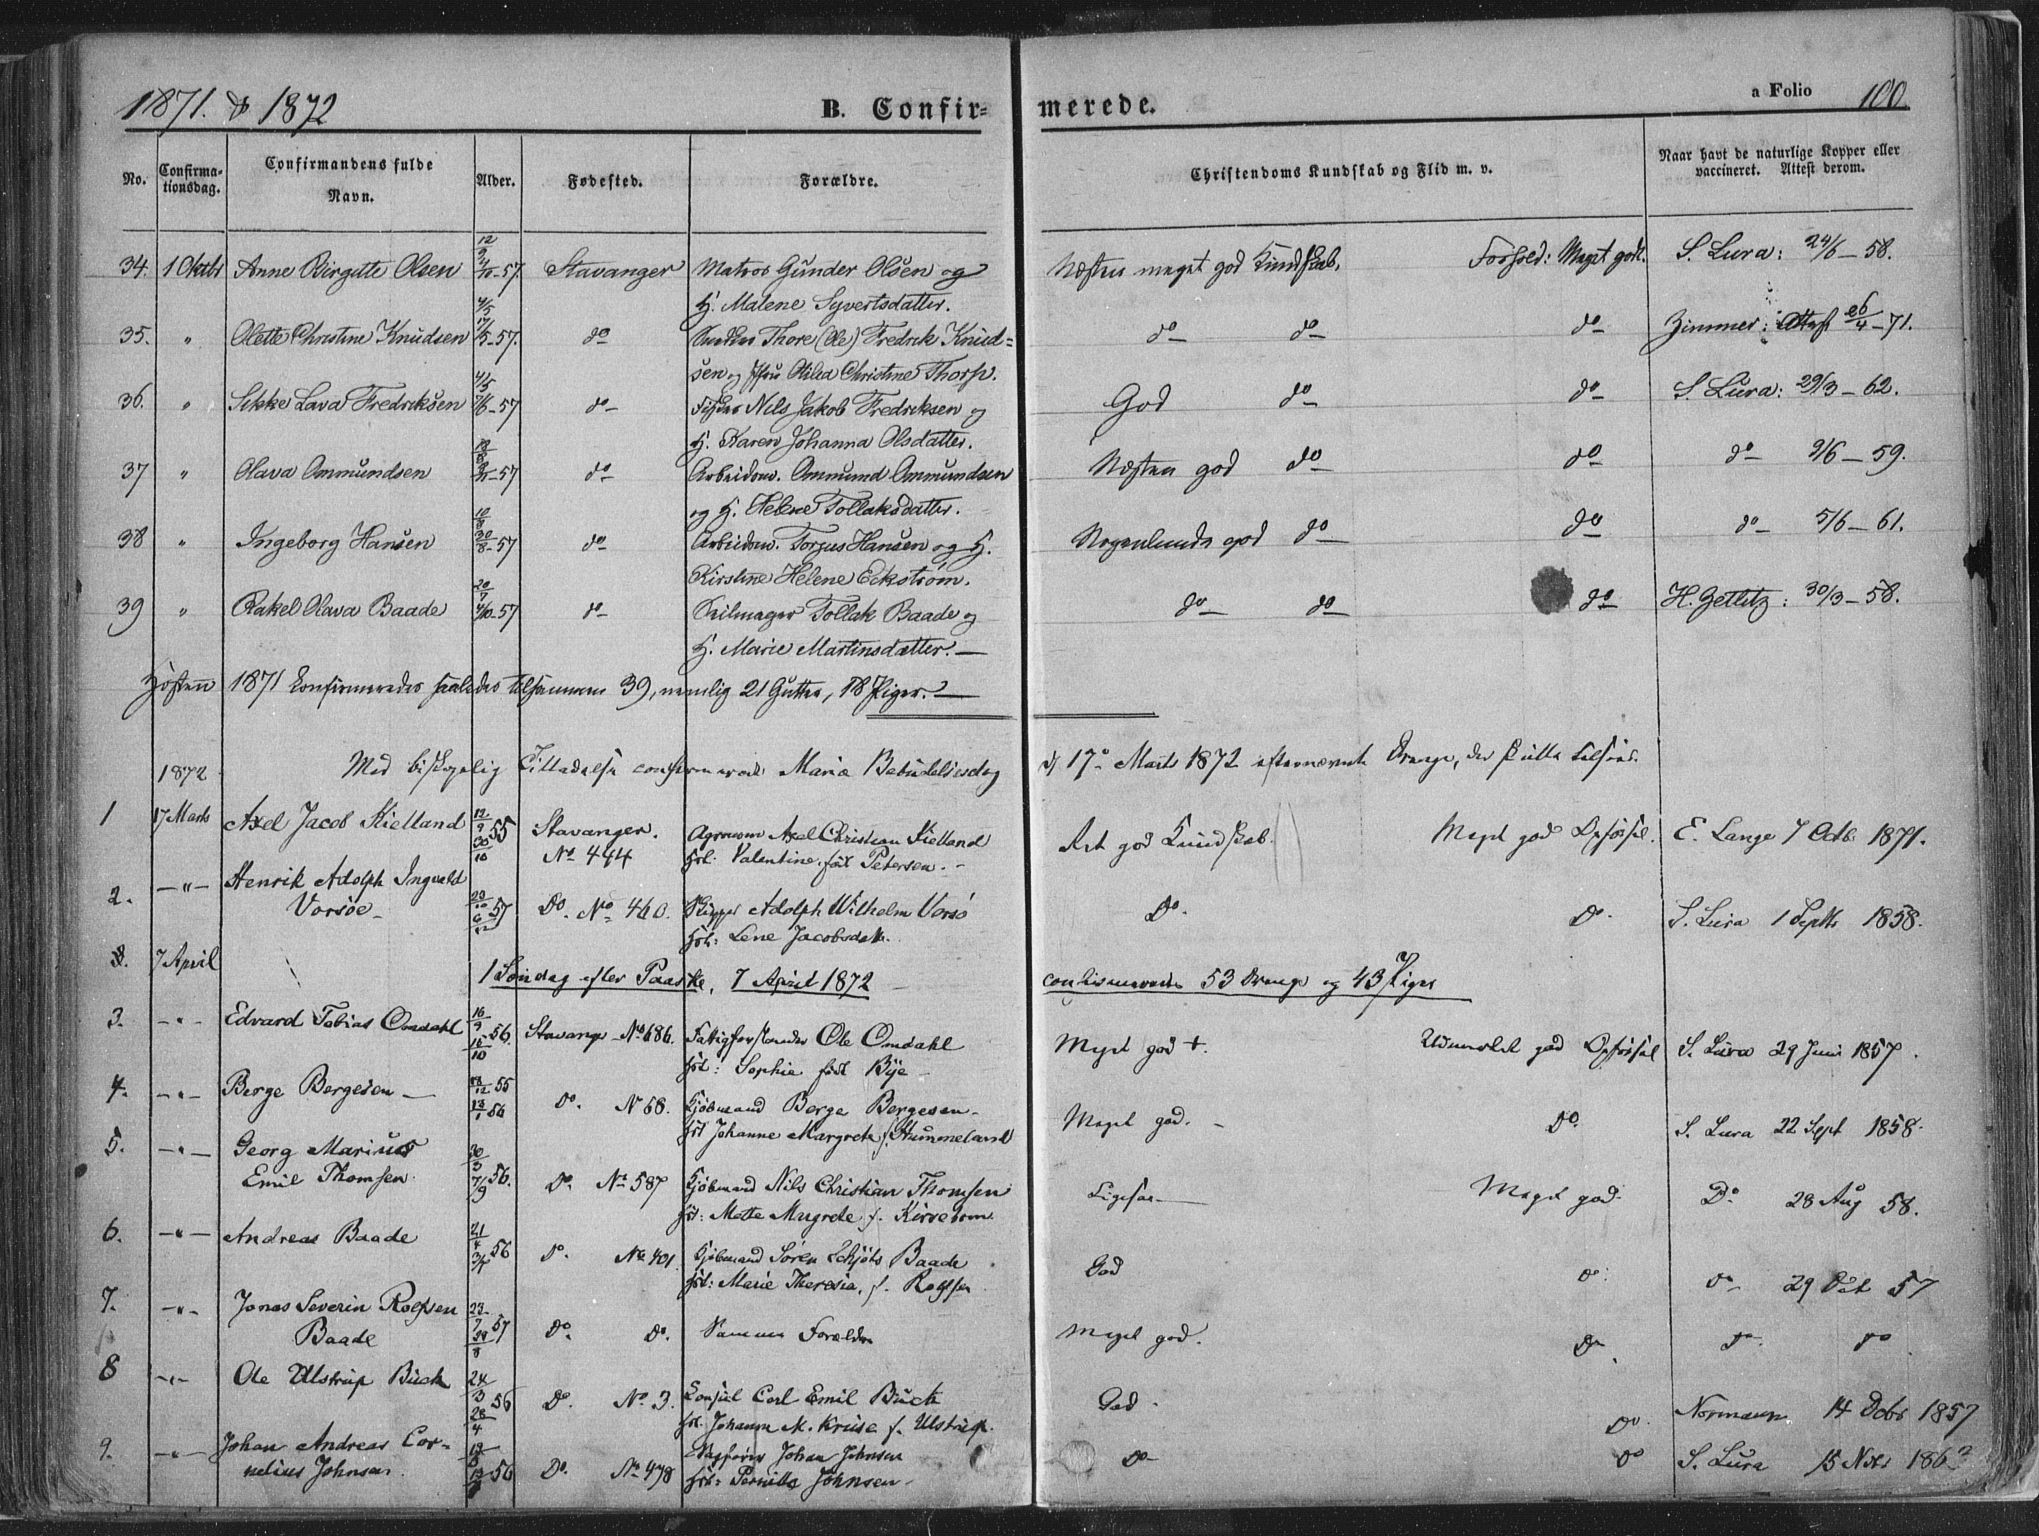 1871. & 1872
B. Confir=
merede.
a Folio 100.
No.
Confirma-
tionsdag.
Confirmandens fulde
Navn.
Alder.
Fødested.
Forældre.
Christendoms Kundskab og Flid m. v.
Naar havt de naturlige Kopper eller
vaccineret. Attest derom.
34. 1 Oktbr Anne Birgitte Olsen 12/9 57 Stavanger Matros Gunder Olsen og Næsten meget god Kundskab, Forhold: Meget godt. S. Lura: 24/6 – 58.
H. Malene Syvertsdatter.
35. " Olette Christine Knudsen 57. do Thore (Ole) Fredrik Knud= do do do Zimmer: Attest 26/4 – 71.
sen og Hilda Christine Thorse.
36. " Sikke Lava Fredriksen 4/5 57 do Fisker Nils Jakob Fredriksen og God do do S. Lura: 29/3 – 62.
H. Karen Johanna Olsdatter.
37 " Olava Ommundsen 57 do Arbeidsm. Ommund Ommundsen Næsten god do do do 9/6 – 59.
og H. Helene Tollaksdatter.
38 " Ingeborg Hansen 30/8 – 57 do Arbeidsm. Torjus Hansen og H. Nogenlunde god do do do 5/6 – 61.
Kirstine Helene Eckstrøm.
39 " Rakel Olava Baade 20/7 57 do Seilmager Tollak Baade og do do do H. Getletz: 30/3 – 58.
H. Marie Martinsdatter. —
Høsten 1871 Confirmeredes saaledes tilsammen 39, nemlig 21 Gutter, 18 Piger. —
1872 Med biskopelig Tilladelse confirmerede Mariæ Bebudelsesdag d. 17de Marts 1872 efternævnte Drenge, der skulde tilsøes.
1 17 Marts Axel Jacob Kielland 12/9 55 Stavanger. Agronom Axel Christian Kielland Ret god Kundskab. Meget god Opførsel. E. Lange 7 Octb. 1871.
30/10 No 444 Hst: Valentine, født Petersen. -
2. –"– Henrik Adolph Ingvald
Vorsøe – 57 Do. No 460. Skipper Adolph Wilhelm Vorsö Do. Do. S. Lura 1 Septb 1858.
Hst: Lene Jacobsdatt.
3. 7 April
1 Søndag efter Paaske, 7 April 1872 confirmerede 53 Drenge og 43 Piger
3. –"– Edvard Tobias Omdahl 16/9 56. Stavanger No 686. Fattigforstander Ole Omdahl Meget god +. Udmærket god Opførsel S. Lura 29 Juni 1857.
15/10 Hst: Sophie født Bye –
4. –"– Berge Bergesen — 55 Do. N 68. Kjøbmand Berge Bergesen – Meget god. – Do. S. Lura 22 Sept 1858.
56 Hst Johanne Margrete f. Hummeland
5. –"– Georg Marius
Emil Thomsen. 56. Do. No 587 Kjøbmand Nils Christian Thomsen Ligesaa — Meget god. Do 28 Aug 58.
Hst: Mette Margrete f. Kirsebom
6. –"– Andreas Baade 21/4 56 Do. No 401. Kjøbmand Sören Schjöts Baade God Do. Do 29 Oct 57
Hst: Marie Theresia, f. Rolfsen
7. –"– Jonas Severin Rolfsen
Baade 57 Do. Do. Samme Forældre Meget god. Do. Do Do
8 –"– Ole Ulstrup Buch 24/3 56 Do. No 3. Consul Carl Emil Buch God. Do. Normann 14 Dcbr 1857
28/4 Hst. Johanna M. Kruse f. Ulstrup.
9. –"– Johan Andreas Cor-
nelius Johnsen. 56 Do. No 478 Johan Johnsen Do – Do S. Lura 15 Nov
Hst: Pernilla Johnsen –